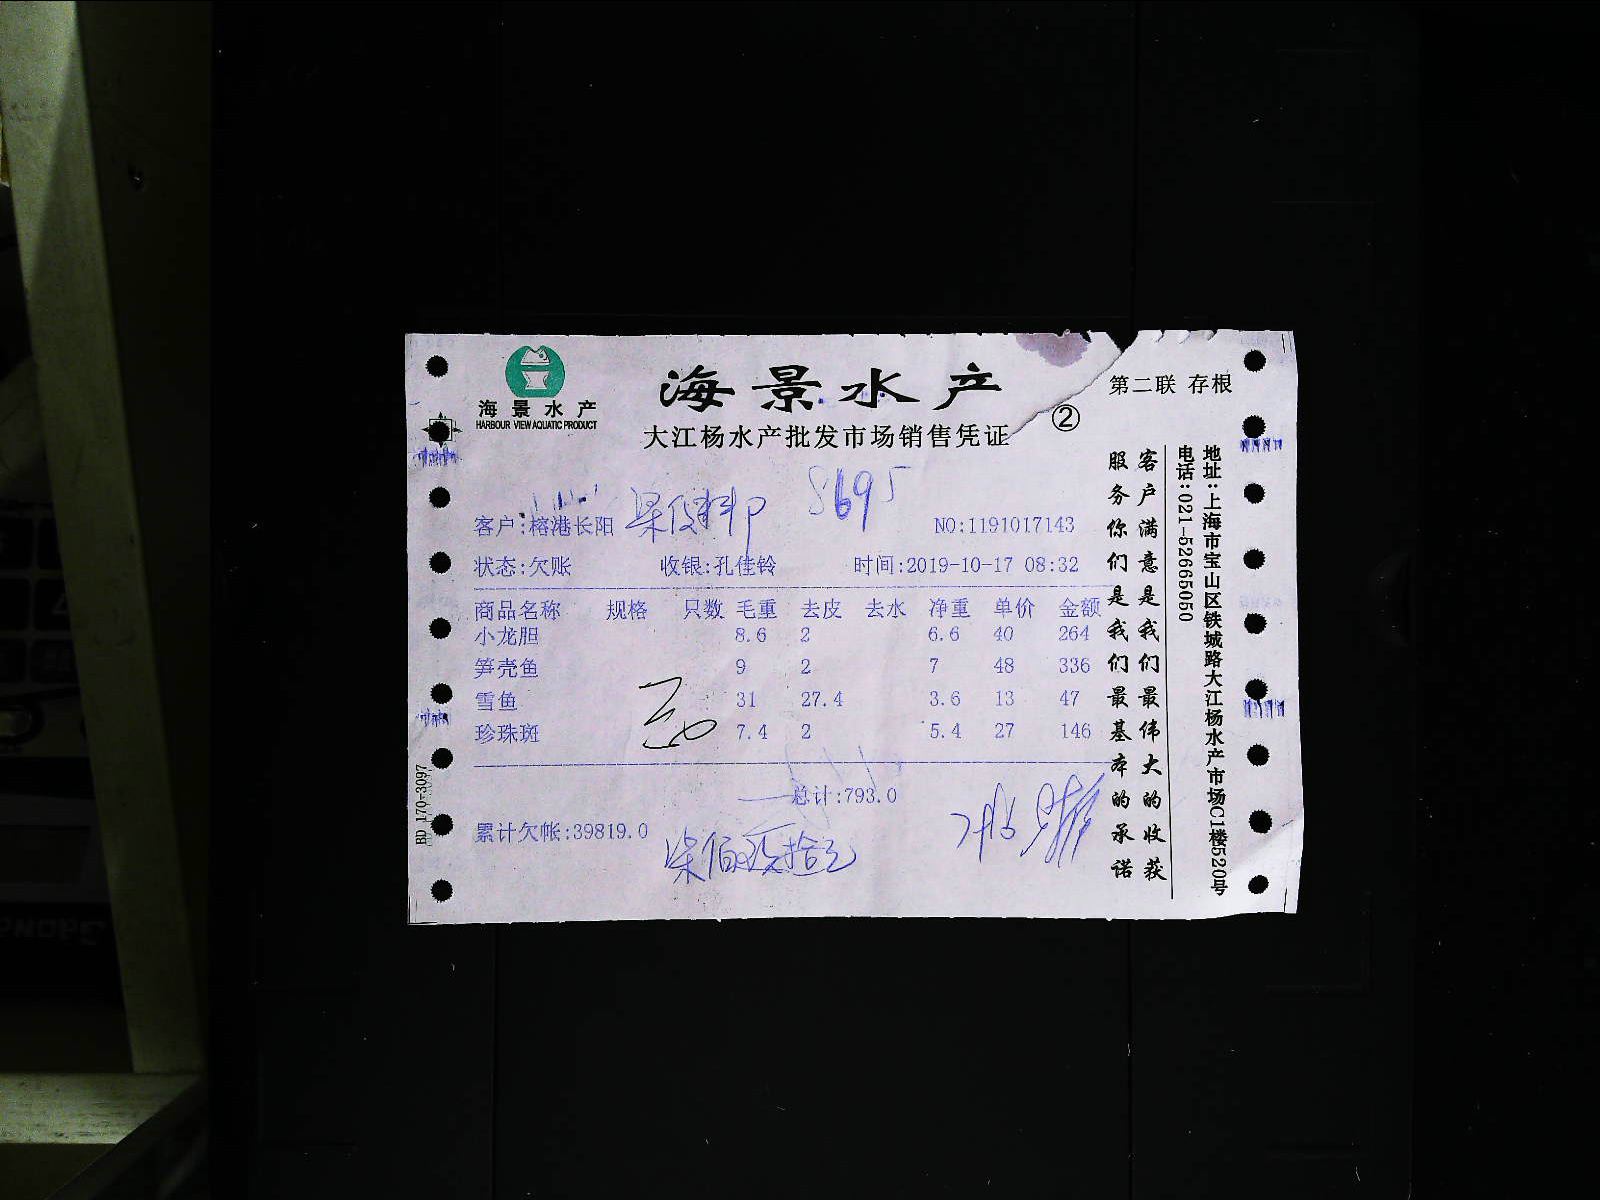 海景水产
HARBOUR VIEW AQUATIC PRODUCT
海景水产
大江杨水产批发市场销售凭证
②
第二联 存根
8695
客户:榕港长阳
NO:1191017143
状态:欠账 收银:孔佳铃 时间:2019-10-17 08:32
商品名称 规格 只数 毛重 去皮 去水 净重 单价 金额
小龙胆 8.6 2 6.6 40 264
笋壳鱼 9 2 7 48 336
雪鱼 31 27.4 3.6 13 47
珍珠斑 7.4 2 5.4 27 146
总计:793.0
累计欠帐:39819.0
客户满意是我们最伟大的收获
服务你们是我们最基本的承诺
地址:上海市宝山区铁城路大江杨水产市场C1楼520号
电话:021-52665050
BD 170-3097